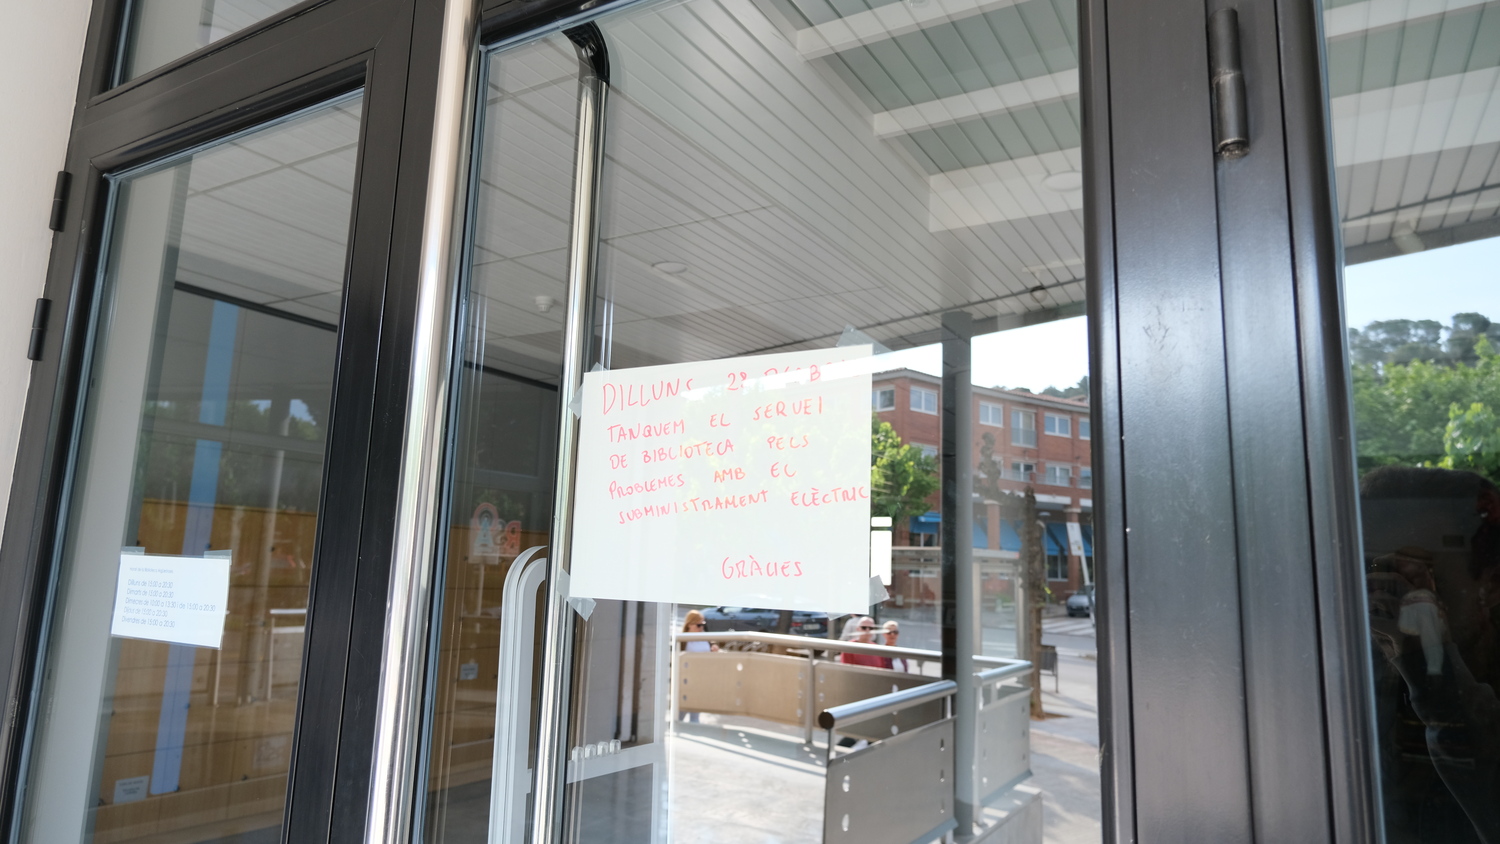 DILLUNS 28 D'AB
TANQUEM EL SERVEI
DE BIBLIOTECA PELS
PROBLEMES AMB EL
SUBMINISTRAMENT ELÈCTRIC
GRÀCIES
Dilluns de 15:00 a 20:30
Dimarts de 15:00 a 20:30
Dimecres de 10:00 a 13:30 i de 15:00 a 20:30
Dijous de 15:00 a 20:30
Divendres de 15:00 a 20:30